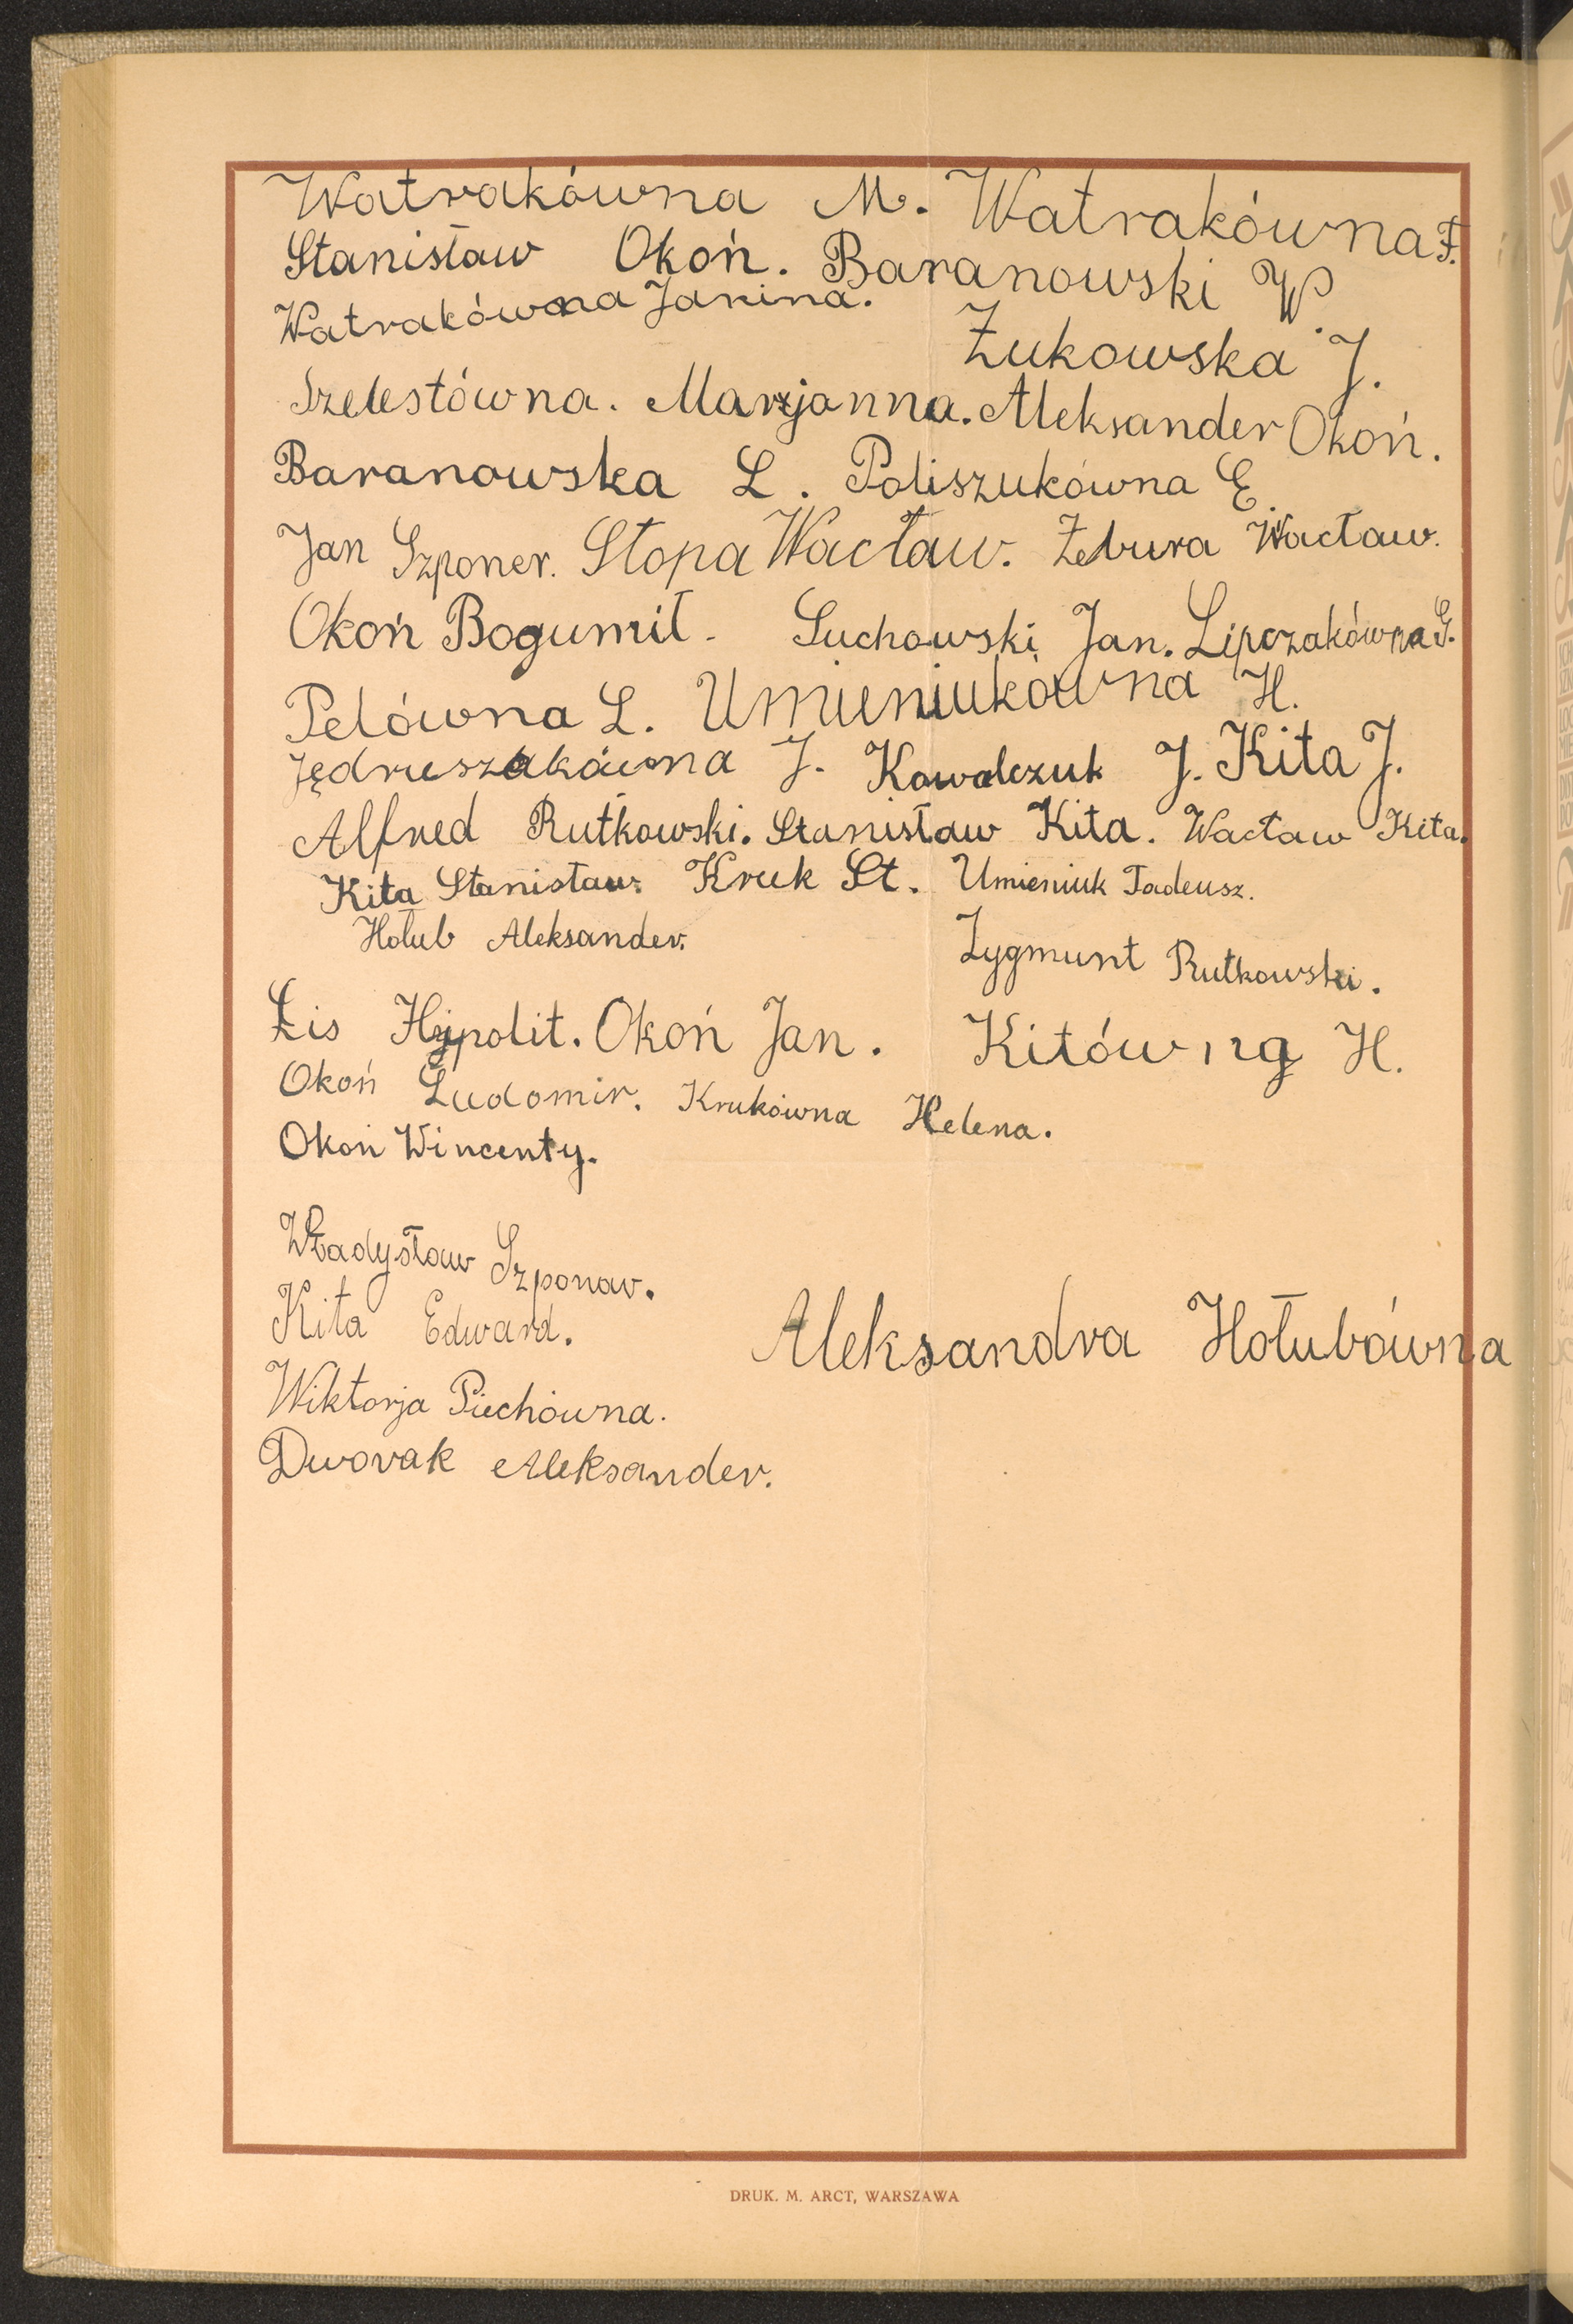 Watrakówna M. Watrakówna F.
Stanisław Okoń. Baranowski W.
Watrakówna Janina. Żukowska J.
Szelestówna. Marjanna. Aleksander Okoń.
Baranowska L. Poliszukówna E.
Jan Szponer. Stopa Wacław. Żebura Wacław.
Okoń Bogumił. Suchowski Jan. Lipczakówna G.
Pelówna L. Umieniukówna H.
Jędruszakówna J. Kowalczuk J. Kita J.
Alfred Rutkowski. Stanisław Kita. Wacław Kita.
Kita Stanisław. Kruk St. Umieniuk Tadeusz.
Hołub Aleksander. Zygmunt Rutkowski.
Lis Hypolit. Okoń Jan. Kitówna H.
Okoń Ludomir. Krukówna Helena.
Okoń Wincenty.
Władysław Szponar.
Kita Edward. Aleksandra Hołubówna
Wiktorja Piechówna.
Dworak Aleksander.
DRUK. M. ARCT, WARSZAWA